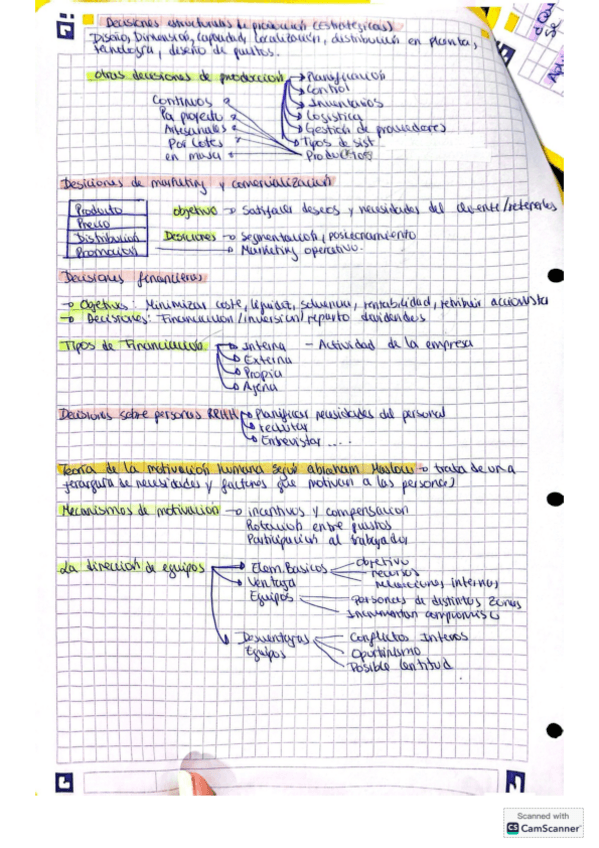 Decisiones estructurales de producción (Estratégicas)
Diseño, Dimensión, capacidad, localización, distribución en planta,
tecnología, diseño de puestos.
otras decisiones de producción → Planificación
Control
Inventarios
Logística
Gestión de proveedores
Tipos de sist.
Productivos
Continuos
Por proyecto
Artesanales
Por Lotes
en masa
Desiciones de marketing y comercialización
Producto
Precio
Distribución
Promoción
objetivo → Satisfacer deseos y necesidades del cliente/retenerlos
Desiciones → Segmentación, posicionamiento
→ Marketing operativo.
Decisiones financieras
→ Objetivos: Minimizar coste, liquidez, solvencia, rentabilidad, retribuir accionista
→ Decisiones: Financiación/inversión/reparto dividendos
Tipos de Financiación → Interna - Actividad de la empresa
Externa
Propia
Ajena
Decisiones sobre personas RRHH → Planificar necesidades del personal
reclutar
Entrevistar ....
Teoría de la motivación humana según abraham Maslow → trata de una
jerarquía de necesidades y factores que motivan a las personas
Mecanismos de motivación → incentivos y compensación
Rotación entre puestos
Participación al trabajador
La dirección de equipos → Elem. Básicos - objetivo
recursos
relaciones internas
Ventaja
Equipos - Personas de distintas zonas
Incrementan compromiso
Desventajas
Equipos
Conflictos Internos
Oportunismo
Posible lentitud
Scanned with
CS CamScanner